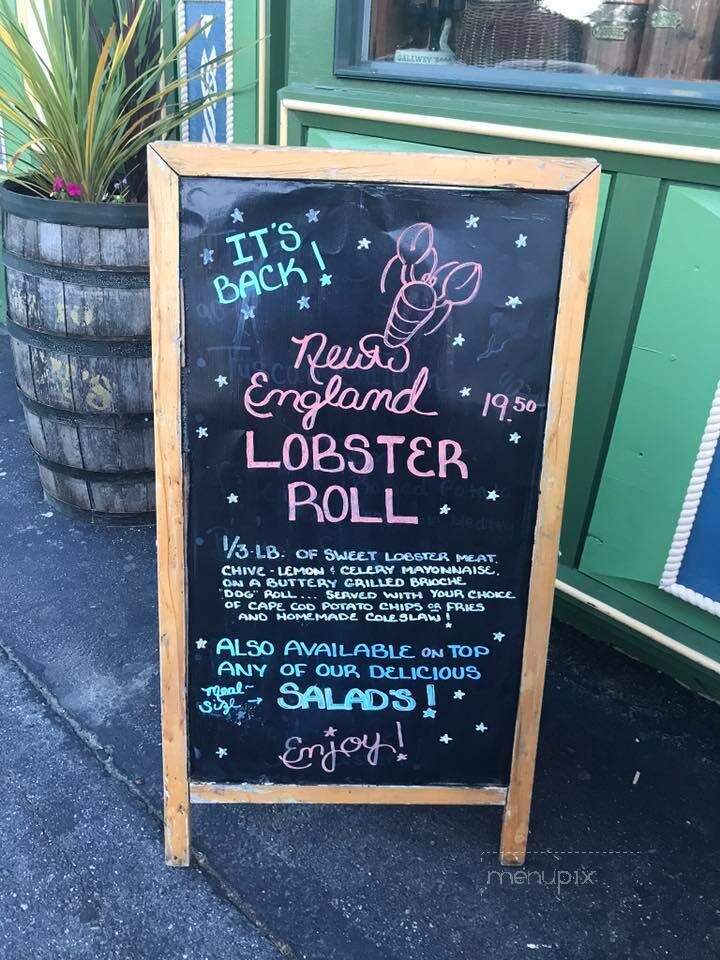 GALLWEY'S
IT'S
BACK!
New
England
19.50
LOBSTER
ROLL
1/3-LB. OF SWEET LOBSTER MEAT,
CHIVE-LEMON & CELERY MAYONNAISE,
ON A BUTTERY GRILLED BRIOCHE
DOG" ROLL... SERVED WITH YOUR CHOICE
OF CAPE COD POTATO CHIPS OR FRIES
AND HOMEMADE COLESLAW!
ALSO AVAILABLE ON TOP
ANY OF OUR DELICIOUS
meal-
size → SALAD'S!
Enjoy!
menupix